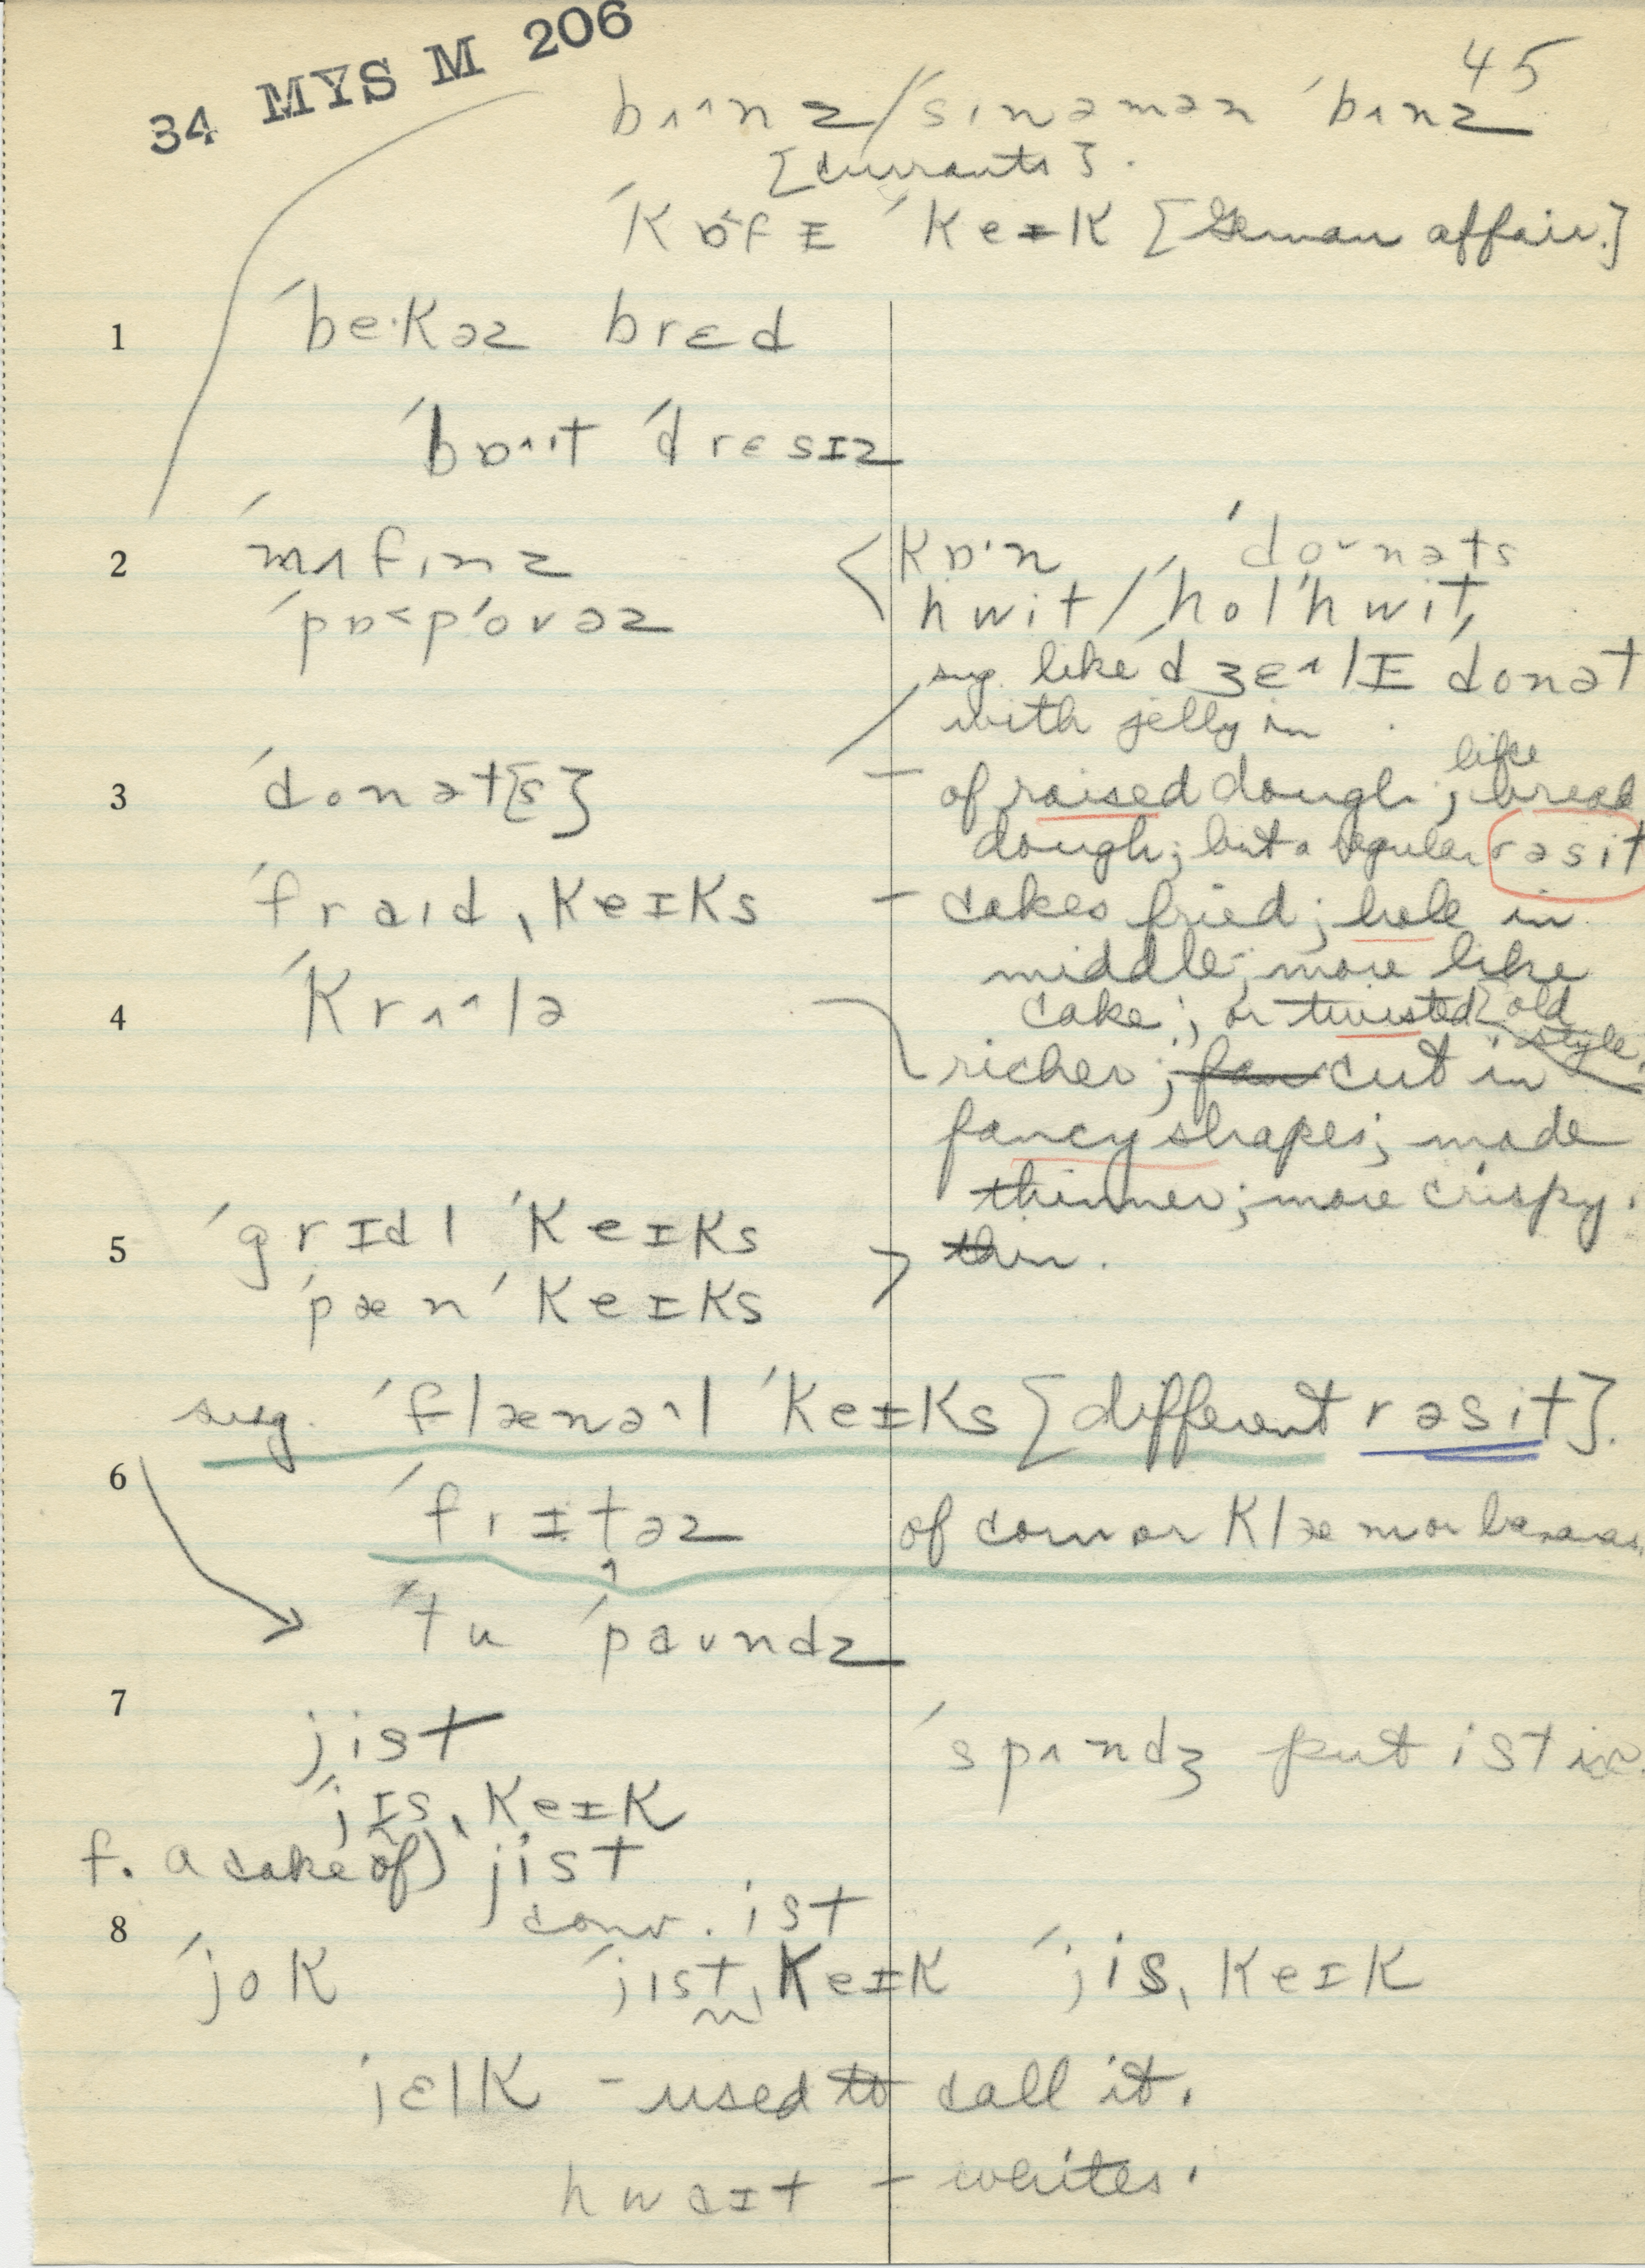 34 MYS M 206
45
bʌ^nz / ˈsɪnəmən ˈbʌnz
[currants].
ˈkɒfɪ ˈkeɪk [German affair.]
1 ˈbe·kəz brɛd
ˈbɒ^ɪt ˈdrɛsɪz
2 ˈmʌfɪnz < kɒ·n ˈdoᵛnəts
ˈpɒ<pˈovəz hwit / ˈholˈhwit,
sug. like ˈdʒɛ^lɪ ˈdonət
with jelly in.
3 ˈdonət[s] – of raised dough; like bread
dough; but a regular rəsit
ˈfraɪdˌkeɪks – cakes fried; hole in
middle; more like
4 ˈkrʌ^lə cake; or twisted [old
style.
richer; fan cut in
fancy shapes; made
thinner; more crispy.
5 ˈgrɪdl ˈkeɪks > thin.
ˈpænˈkeɪks
sug. ˈflænə^l ˈkeɪks [different rəsit].
6 ˈfrɪtəz of corn or klæm or bananas
ˈtu ˈpaundz
7 jist ˈspʌndʒ put ist in.
ˈjɪsˌkeɪk
f. a cake of) jist
conv. ist
8 ˈjok ˈjɪstˌkeɪk ˈjisˌkeɪk
jɛlk – used to call it.
hwaɪt – whites.